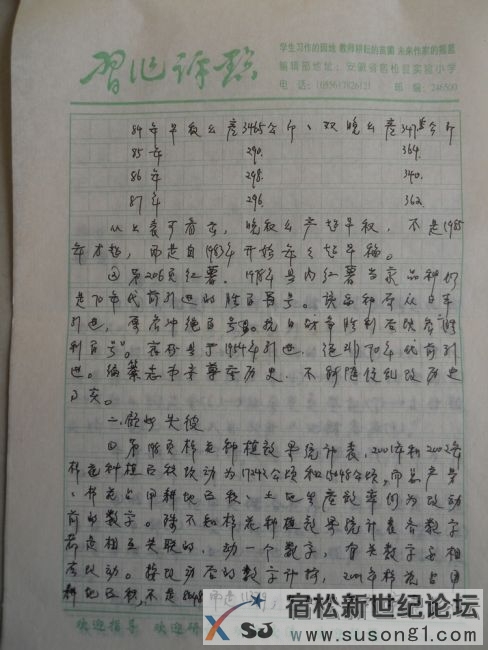 习作评点
学生习作的园地 教师耕耘的苗圃 未来作家的摇篮
编辑部地址：安徽省宿松县实验小学
电话：(0556)7826121 邮编：246500
84年早稻公产3465公斤、双晚公产347公斤
85年 290. 364.
86年 298. 340.
87年 296. 362.
从上表可看出，晚稻公产超早稻，不是1985
年才超，而是自1983年开始年年超早稻。
第206页红薯。1984年县内红薯当家品种仍
是70年代前引进的胜利百号。该品种原从日本
引进，原名冲绳百号。抗日战争胜利后改名“胜
利百号”。我县于1954年引进，绝非70年代前引
进。编纂志书要尊重历史，不能随便乱改历史
事实。
二、顾此失彼
第198页棉花种植效果统计表，2001年和2002年
棉花种植面积改动为17242公顷和15248公顷，而总产量
、棉花占用耕地面积、土地生产效率仍为改动
前的数字。殊不知棉花种植效果统计表各数字
都是相互关联的，动一个数字，有关数字要相
应改动。按改动后的数字计算，2001年棉花占用
耕地面积，不是8048
欢迎指导 欢迎
SJ
宿松新世纪论坛
www.susong1.com